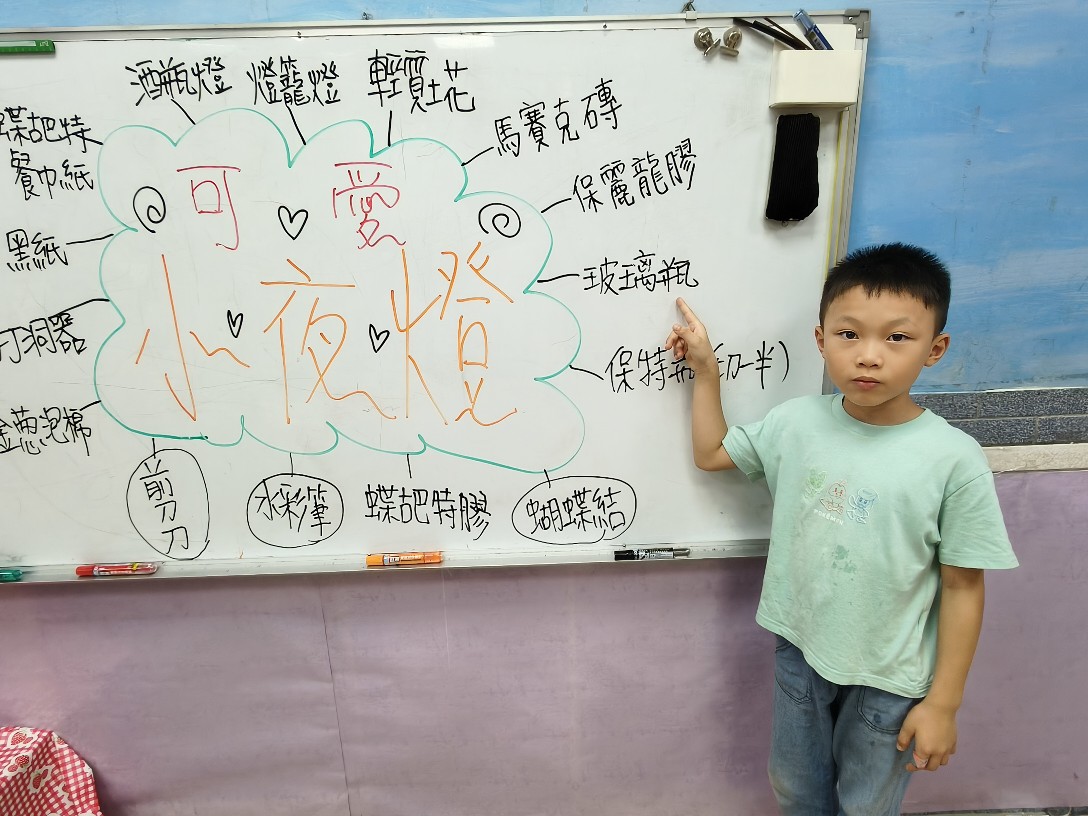 酒瓶燈
燈籠燈
輕質土花
蝶古巴特
餐巾紙
黑紙
打洞器
金蔥泡棉
可愛
小夜燈
馬賽克磚
保麗龍膠
玻璃瓶
保特瓶(切一半)
剪刀
水彩筆
蝶古巴特膠
蝴蝶結